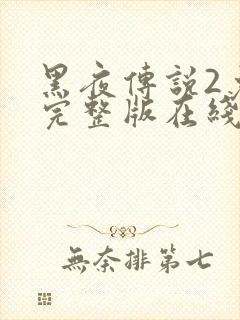 黑夜傳説2
完整版在綫
無奈排第七